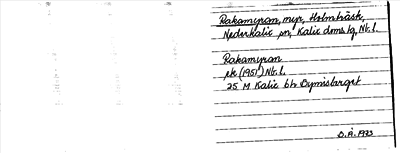 Rakamyran, myr, Holmträsk,
Nederkalix sn, Kalix doms.lg, Nb.l.
Rakamyran
ek (1951) Nb.l.
25 M Kalix bl. Bymistarget
D.Å. 1973